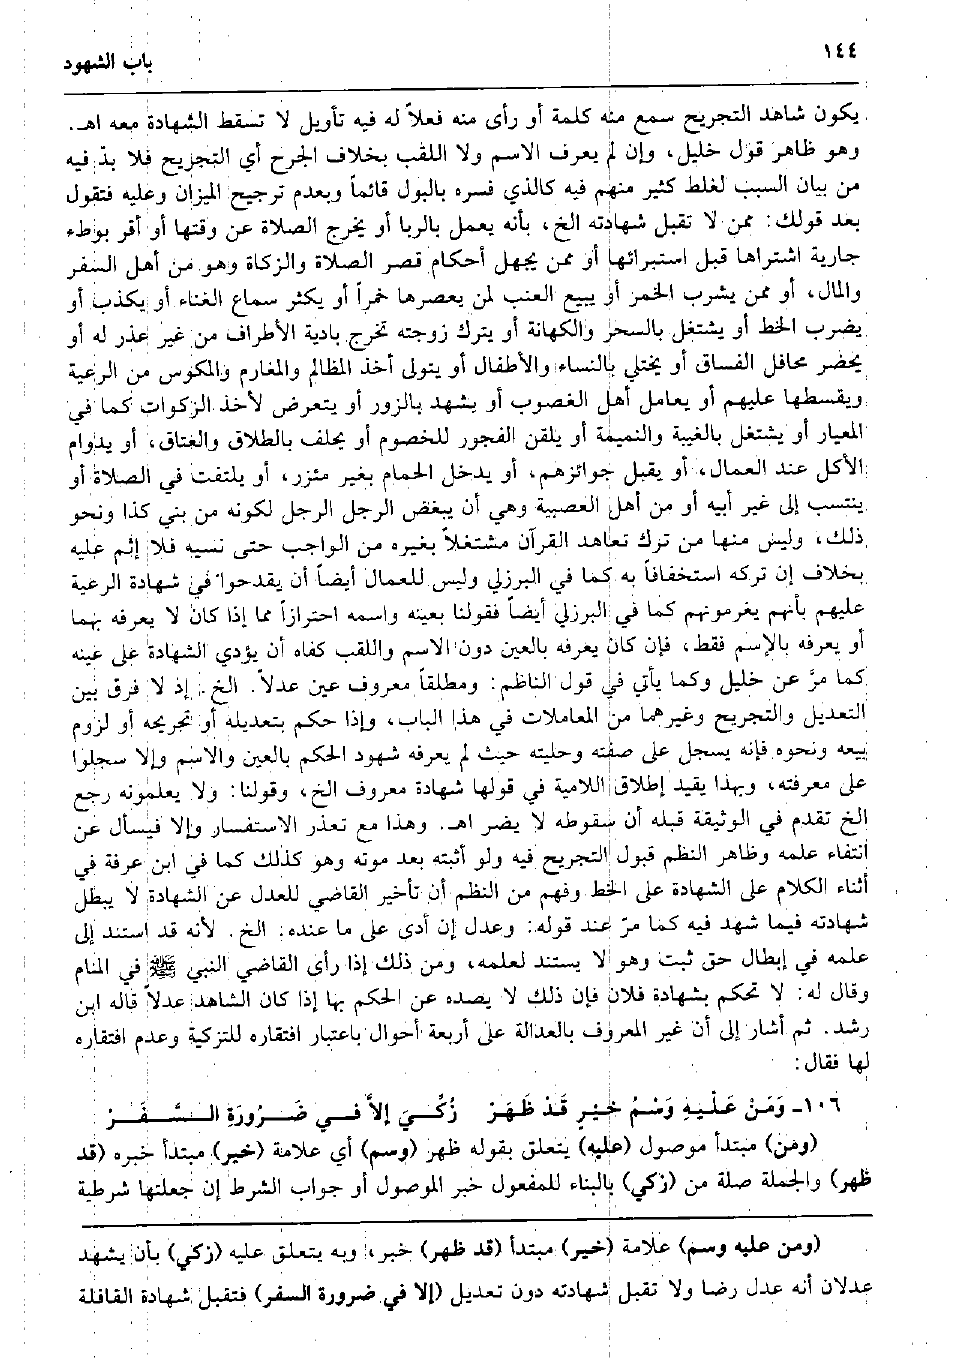 ١٤٤
باب الشهود
يكون شاهد التجريح سمع منه كلمة أو رأى منه فعلاً له فيه تأويل لا تسقط الشهادة معه اهـ.
وهو ظاهر قول خليل، وإن لم يعرف الاسم ولا اللقب بخلاف الجرح أي التجريح فلا بدّ فيه
من بيان السبب لغلط كثير منهم فيه كالذي فسره بالبول قائماً وبعدم ترجيح الميزان وعليه فتقول
بعد قولك: ممن لا تقبل شهادته الخ، بأنه يعمل بالربا أو يخرج الصلاة عن وقتها أو أقر بوطء
جارية اشتراها قبل استبرائها أو ممن يجهل أحكام قصر الصلاة والزكاة وهو من أهل السفر
والمال، أو ممن يشرب الخمر أو يبيع العنب لمن يعصرها خمراً أو يكثر سماع الغناء أو يكذب أو
يضرب الخط أو يشتغل بالسحر والكهانة أو يترك زوجته تخرج بادية الأطراف من غير عذر له أو
يحضر محافل الفساق أو يختلي بالنساء والأطفال أو يتولى أخذ المظالم والمغارم والمكوس من الرعية
ويقسطها عليهم أو يعامل أهل الغصوب أو يشهد بالزور أو يتعرض لأخذ الزكوات كما في
المعيار أو يشتغل بالغيبة والنميمة أو يلقن الفجور للخصوم أو يحلف بالطلاق والعتاق، أو يداوم
الأكل عند العمال، أو يقبل جوائزهم، أو يدخل الحمام بغير مئزر، أو يلتفت في الصلاة أو
ينتسب إلى غير أبيه أو من أهل العصبية وهي أن يبغض الرجل الرجل لكونه من بني كذا ونحو
ذلك، وليس منها من ترك تعاهد القرآن مشتغلاً بغيره من الواجب حتى نسيه فلا إثم عليه
بخلاف إن تركه استخفافاً به كما في البرزلي وليس للعمال أيضاً أن يقدحوا في شهادة الرعية
عليهم بأنهم يغرمونهم كما في البرزلي أيضاً فقولنا بعينه واسمه احترازاً مما إذا كان لا يعرفه بهما
أو يعرفه بالإسم فقط، فإن كان يعرفه بالعين دون الاسم واللقب كفاه أن يؤدي الشهادة على عينه
كما مرّ عن خليل وكما يأتي في قول الناظم: ومطلقاً معروف عين عدلاً. الخ. إذ لا فرق بين
التعديل والتجريح وغيرهما من المعاملات في هذا الباب، وإذا حكم بتعديله أو تجريحه أو لزوم
بيعه ونحوه فإنه يسجل على صفته وحليته حيث لم يعرفه شهود الحكم بالعين والاسم وإلا سجلوا
على معرفته، وبهذا يقيد إطلاق اللامية في قولها شهادة معروف الخ، وقولنا: ولا يعلمونه رجع
الخ تقدم في الوثيقة قبله أن سقوطه لا يضر اهـ. وهذا مع تعذر الاستفسار وإلا فيسأل عن
انتفاء علمه وظاهر النظم قبول التجريح فيه ولو أثبته بعد موته وهو كذلك كما في ابن عرفة في
أثناء الكلام على الشهادة على الخط وفهم من النظم أن تأخير القاضي للعدل عن الشهادة لا يبطل
شهادته فيما شهد فيه كما مرّ عند قوله: وعدل إن أدى على ما عنده: الخ. لأنه قد استند إلى
علمه في إبطال حق ثبت وهو لا يستند لعلمه، ومن ذلك إذا رأى القاضي النبي ﷺ في المنام
وقال له: لا تحكم بشهادة فلان فإن ذلك لا يصده عن الحكم بها إذا كان الشاهد عدلاً قاله ابن
رشد. ثم أشار إلى أن غير المعروف بالعدالة على أربعة أحوال باعتبار افتقاره للتزكية وعدم افتقاره
لها فقال:
١٠٦- وَمَنْ عَلَيهِ وَسْمُ خَيْرٍ قَدْ ظَهَرْ زُكِّيَ إلاَّ في ضَرُورَةِ السَّفَرْ
(ومن) مبتدأ موصول (عليه) يتعلق بقوله ظهر (وسم) أي علامة (خير) مبتدأ خبره (قد
ظهر) والجملة صلة من (زكي) بالبناء للمفعول خبر الموصول أو جواب الشرط إن جعلتها شرطية
(ومن عليه وسم) علامة (خير) مبتدأ (قد ظهر) خبر، وبه يتعلق عليه (زكي) بأن يشهد
عدلان أنه عدل رضا ولا تقبل شهادته دون تعديل (إلا في ضرورة السفر) فتقبل شهادة القافلة